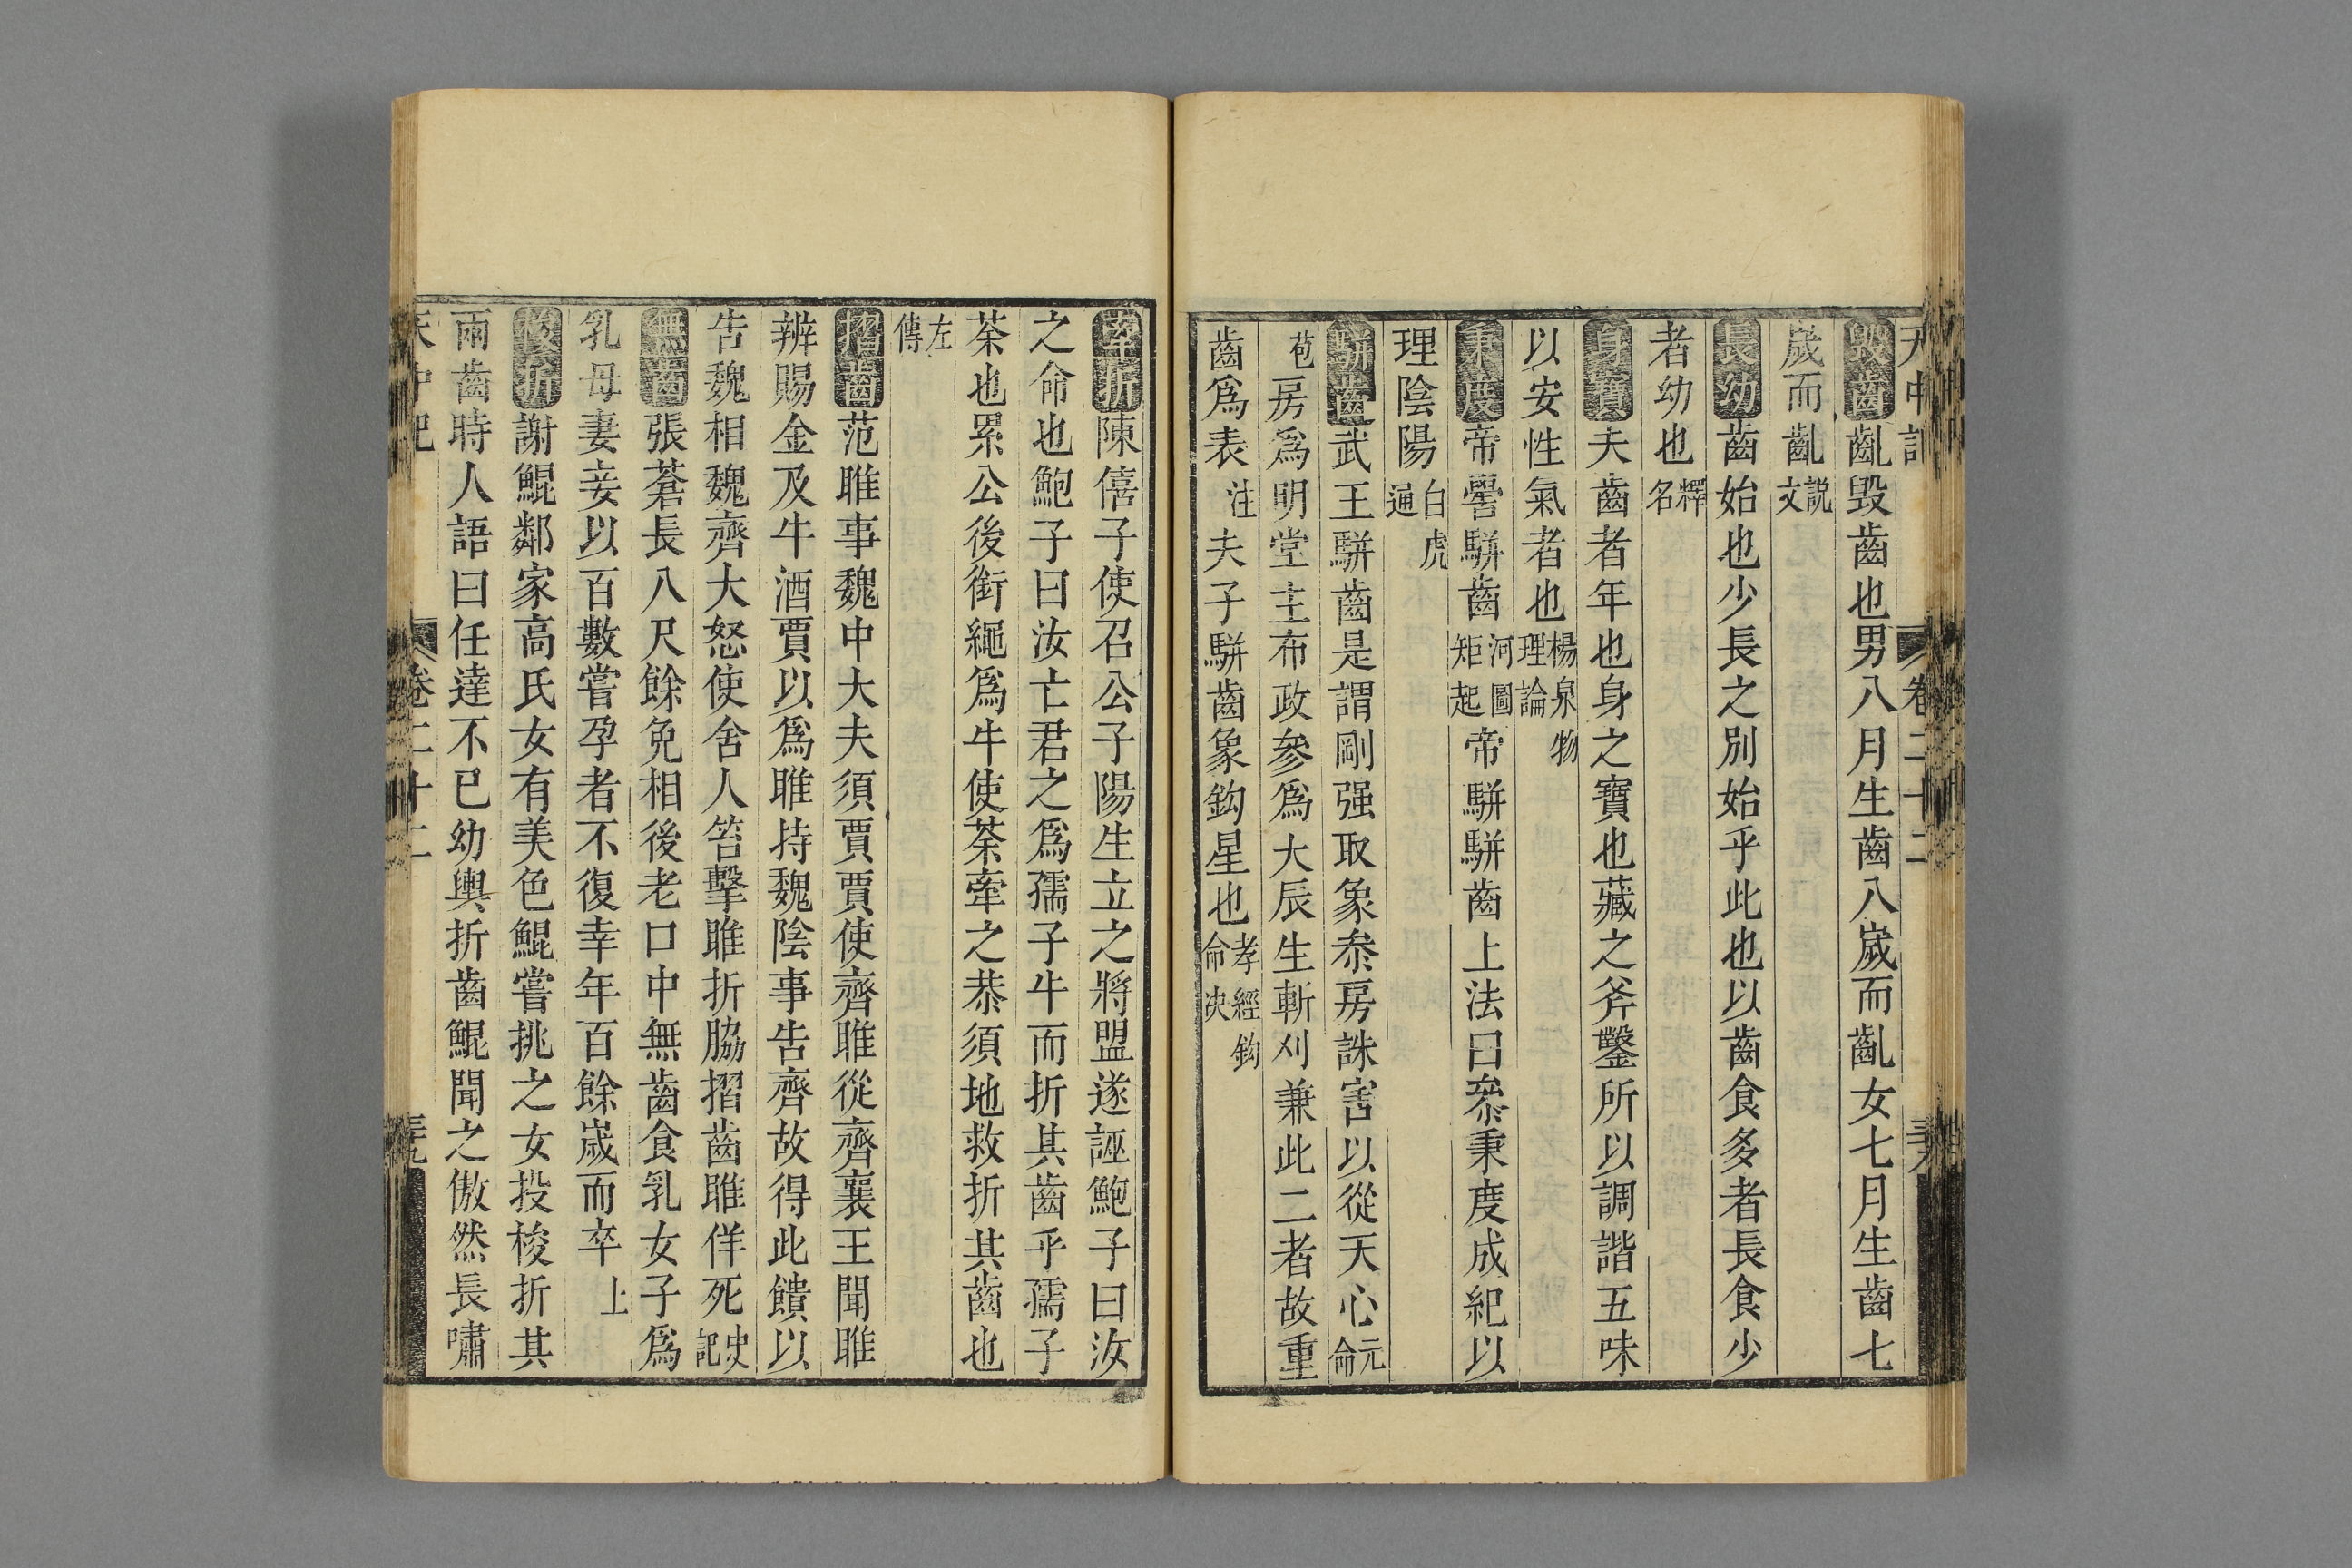 天中記 卷二十二
毀齒齔毀齒也男八月生齒八歲而齔女七月生齒七
歲而齔說文
長幼齒始也少長之別始乎此也以齒食多者長食少
者幼也釋名
身寶夫齒者年也身之寶也藏之斧鑿所以調諧五味
以安性氣者也楊泉物理論
秉度帝嚳駢齒河圖矩起帝駢駢齒上法日叅秉度成紀以
理陰陽白虎通
駢齒武王駢齒是謂剛强取象叅房誅害以從天心元命
苞房爲明堂主布政參爲大辰生斬刈兼此二者故重
齒爲表注夫子駢齒象鈎星也孝經鈎命决
牽折陳僖子使召公子陽生立之將盟遂誣鮑子曰汝
之命也鮑子曰汝亡君之爲孺子牛而折其齒乎孺子
荼也累公後銜繩爲牛使荼牽之恭須地救折其齒也
左傳
摺齒范睢事魏中大夫須賈賈使齊睢從齊襄王聞睢
辨賜金及牛酒賈以爲睢持魏陰事告齊故得此饋以
告魏相魏齊大怒使舍人笞擊睢折脇摺齒睢佯死史記
無齒張蒼長八尺餘免相後老口中無齒食乳女子爲
乳母妻妾以百數嘗孕者不復幸年百餘歲而卒上
梭折謝鯤鄰家高氏女有美色鯤嘗挑之女投梭折其
兩齒時人語曰任達不已幼輿折齒鯤聞之傲然長嘯
天中記 卷二十二